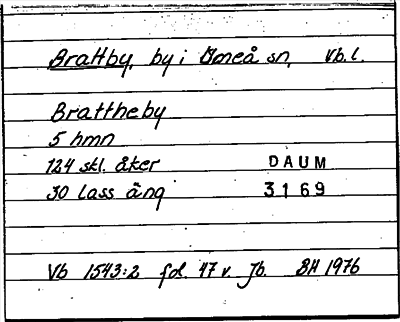 Brattby, by i Umeå sn, Vb.l.
Brattheby
5 hmn
124 skl. åker
DAUM
30 lass äng
3169
Vb 1543:2 fol. 47 v. Jb. BH 1976